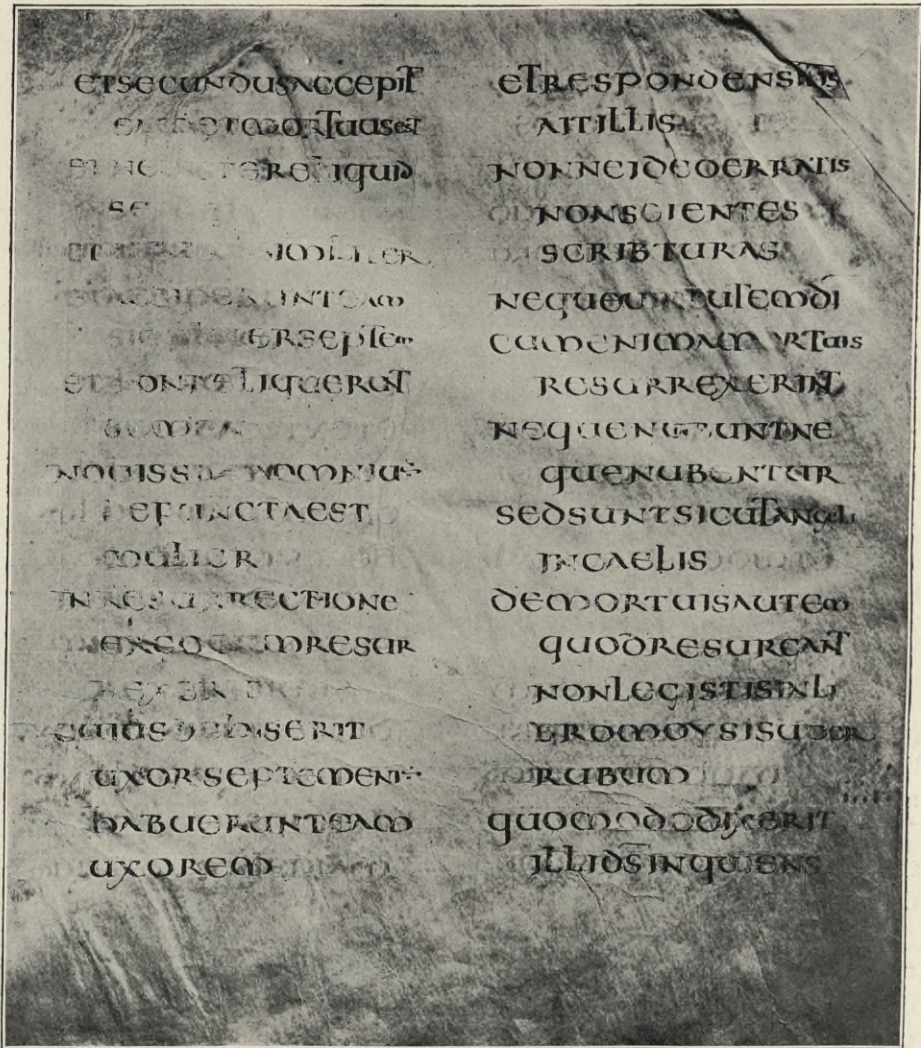 etsecundusaccepit
etmortuusest
reliquid
etacceperunteam
septem
liquerut
semen
nouissimaomniu
defunctaest
mulier
inresurrectione
resur
cuiusdehisserit
uxorseptemeni
habuerunteam
uxorem
etrespondensihs
aitillis
nonneideoerratis
nonscientes
scribturas
nequeuirtutemdi
cumenimamortuis
resurrexerint
nequenubuntne
quenubentur
sedsuntsicutangeli
incaelis
demortuisautem
quodresurcant
nonlegistisinli
bromoysisuper
rubum
quomododixerit
illidsinquiens